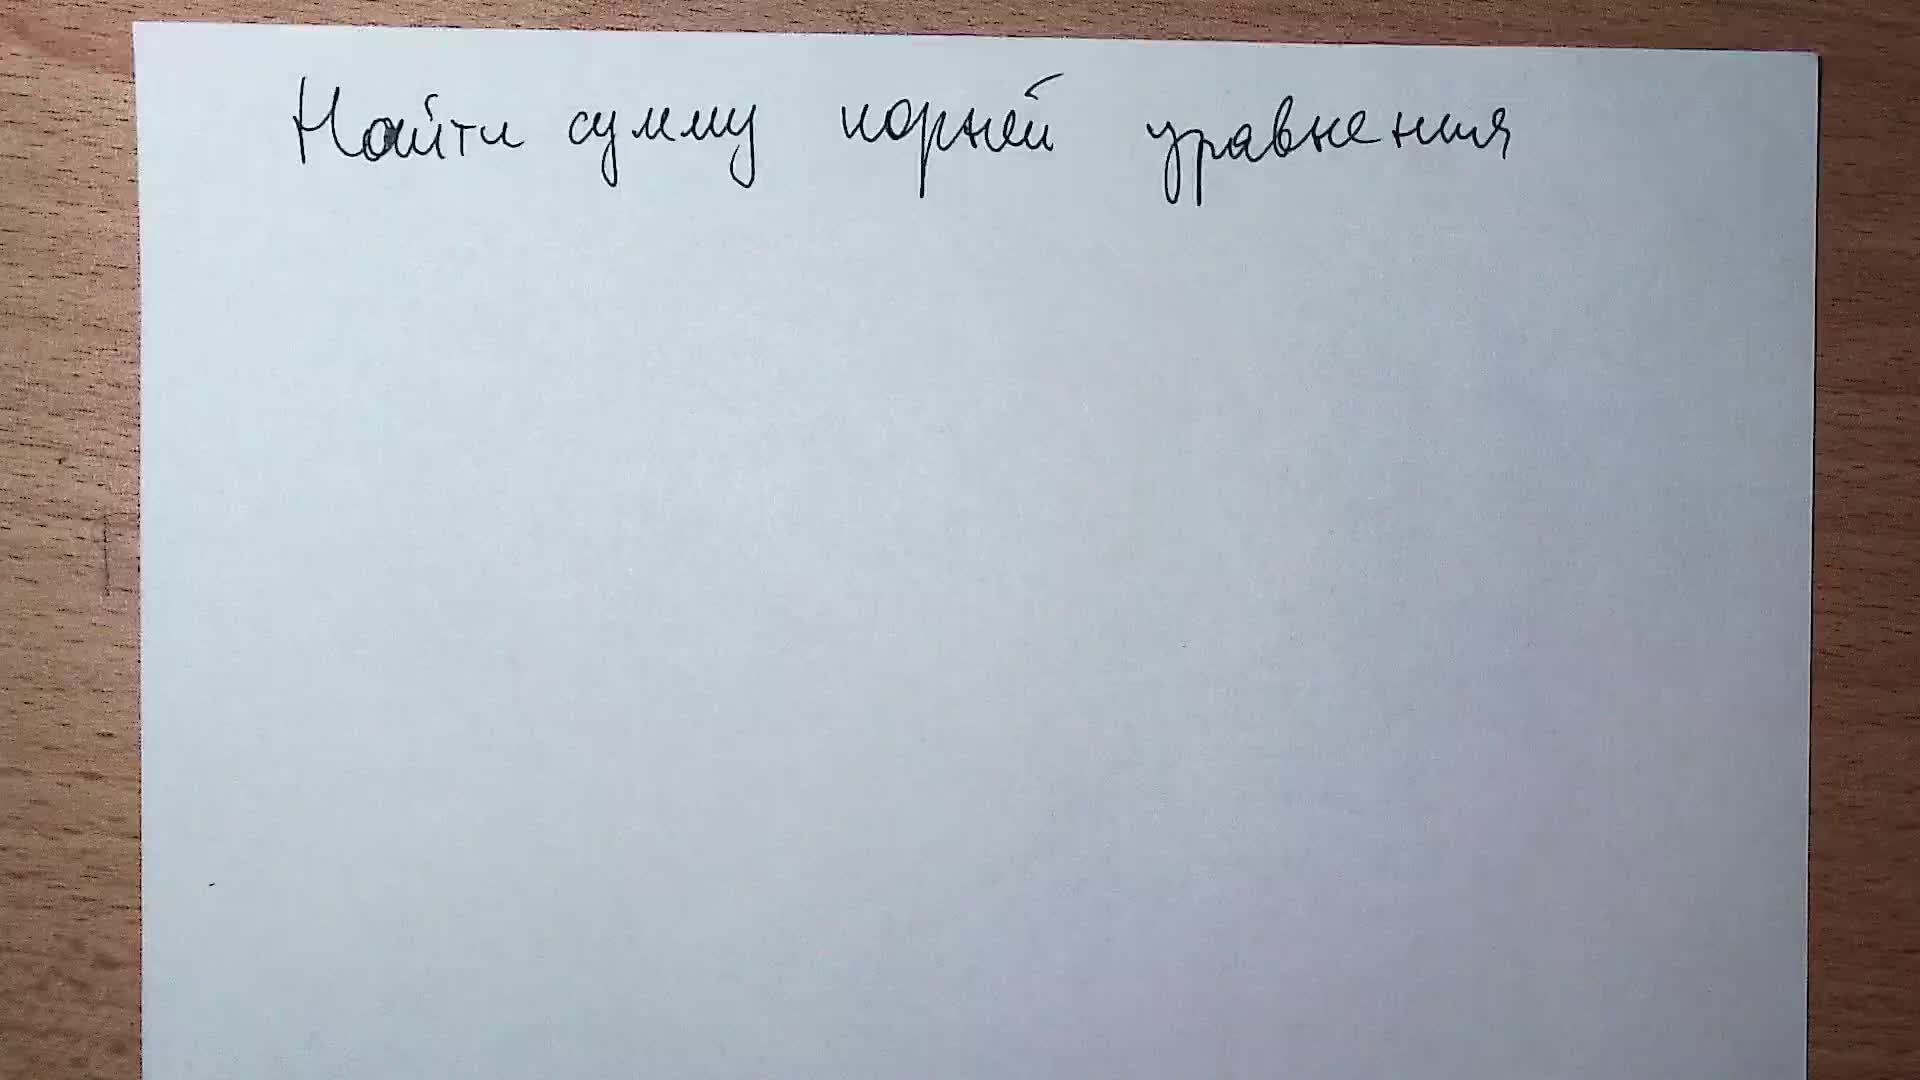 Найти сумму корней уравнения